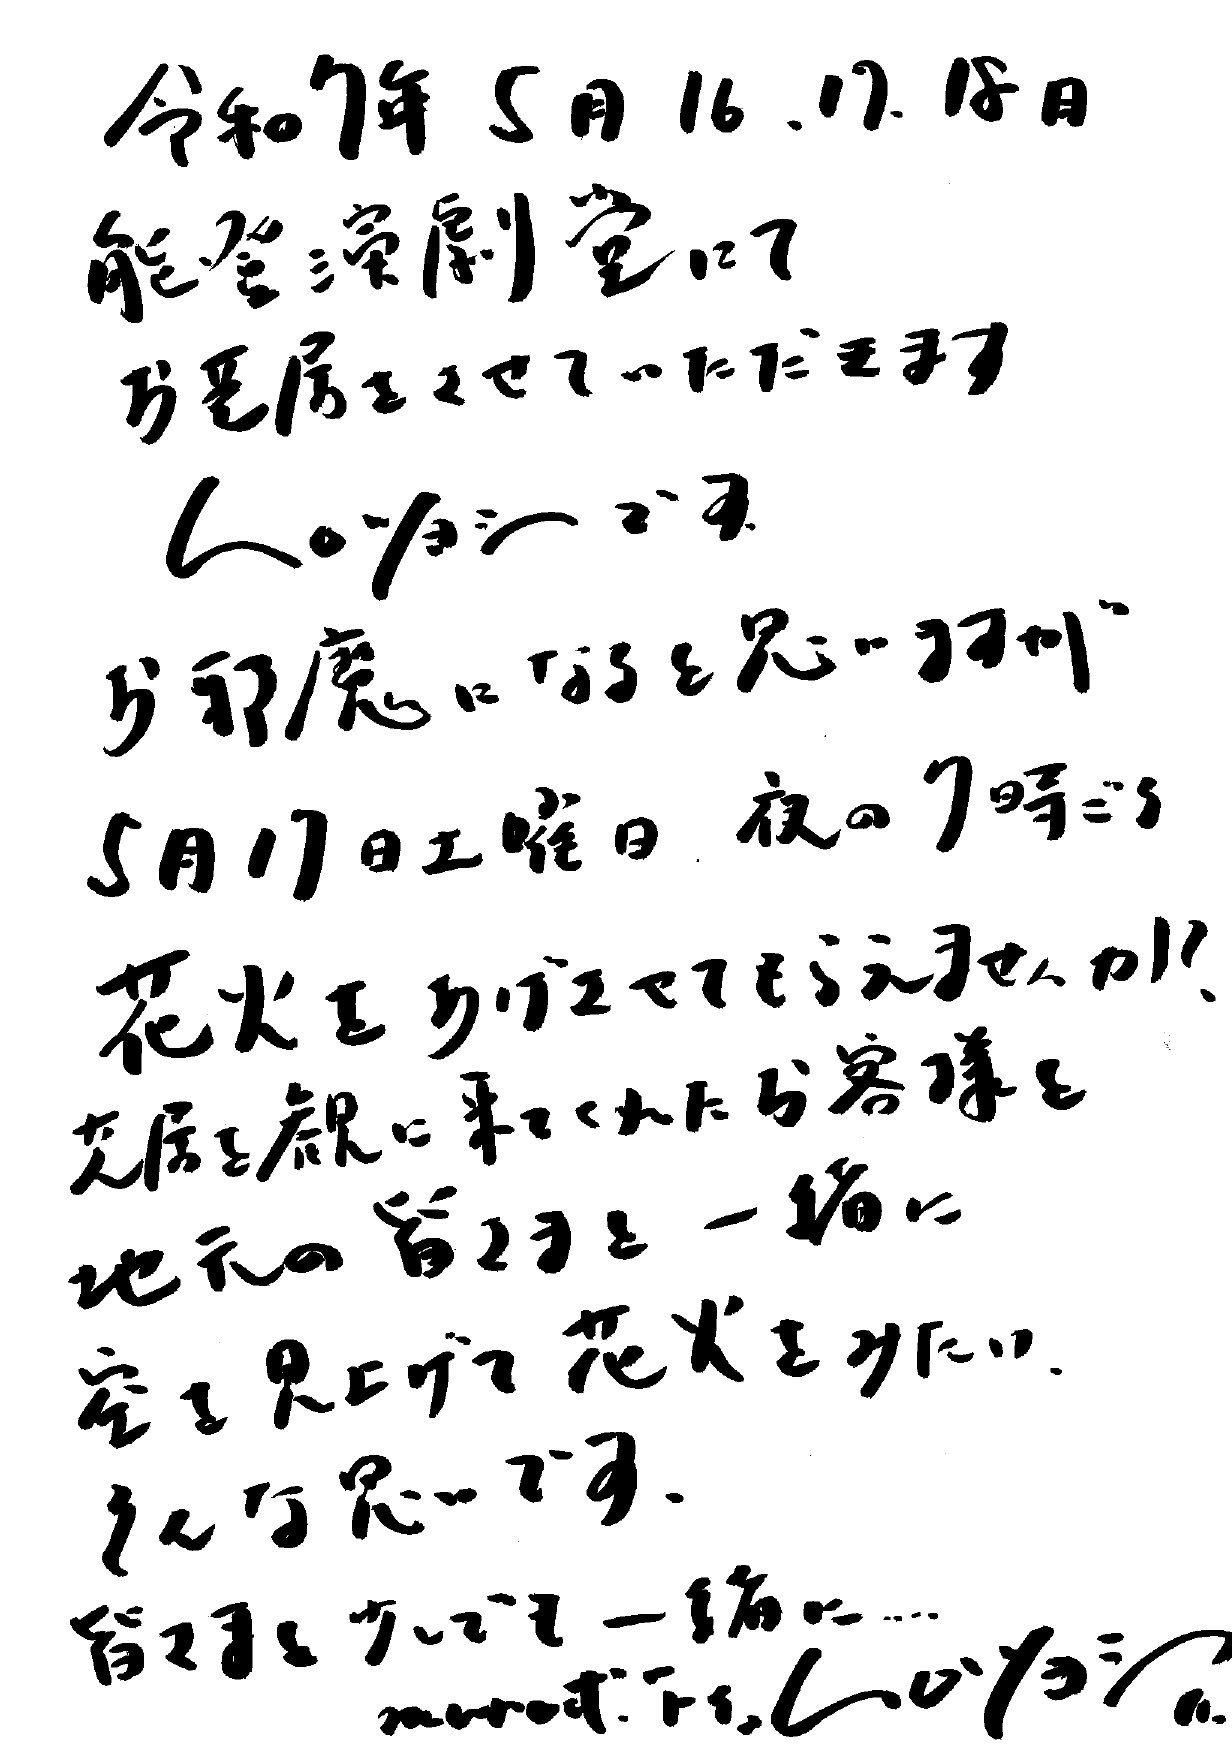 令和7年 5月 16.17.18日
能登演劇堂にて
お芝居をさせていただきます
です
お邪魔になると思いますが
5月17日土曜日 夜の7時ごろ
花火をあげさせてもらえませんか?
芝居を観に来てくれたお客様と
地元の皆さまと 一緒に
空を見上げて花火をみたい.
そんな思いです.
皆さまと 少しでも 一緒に....